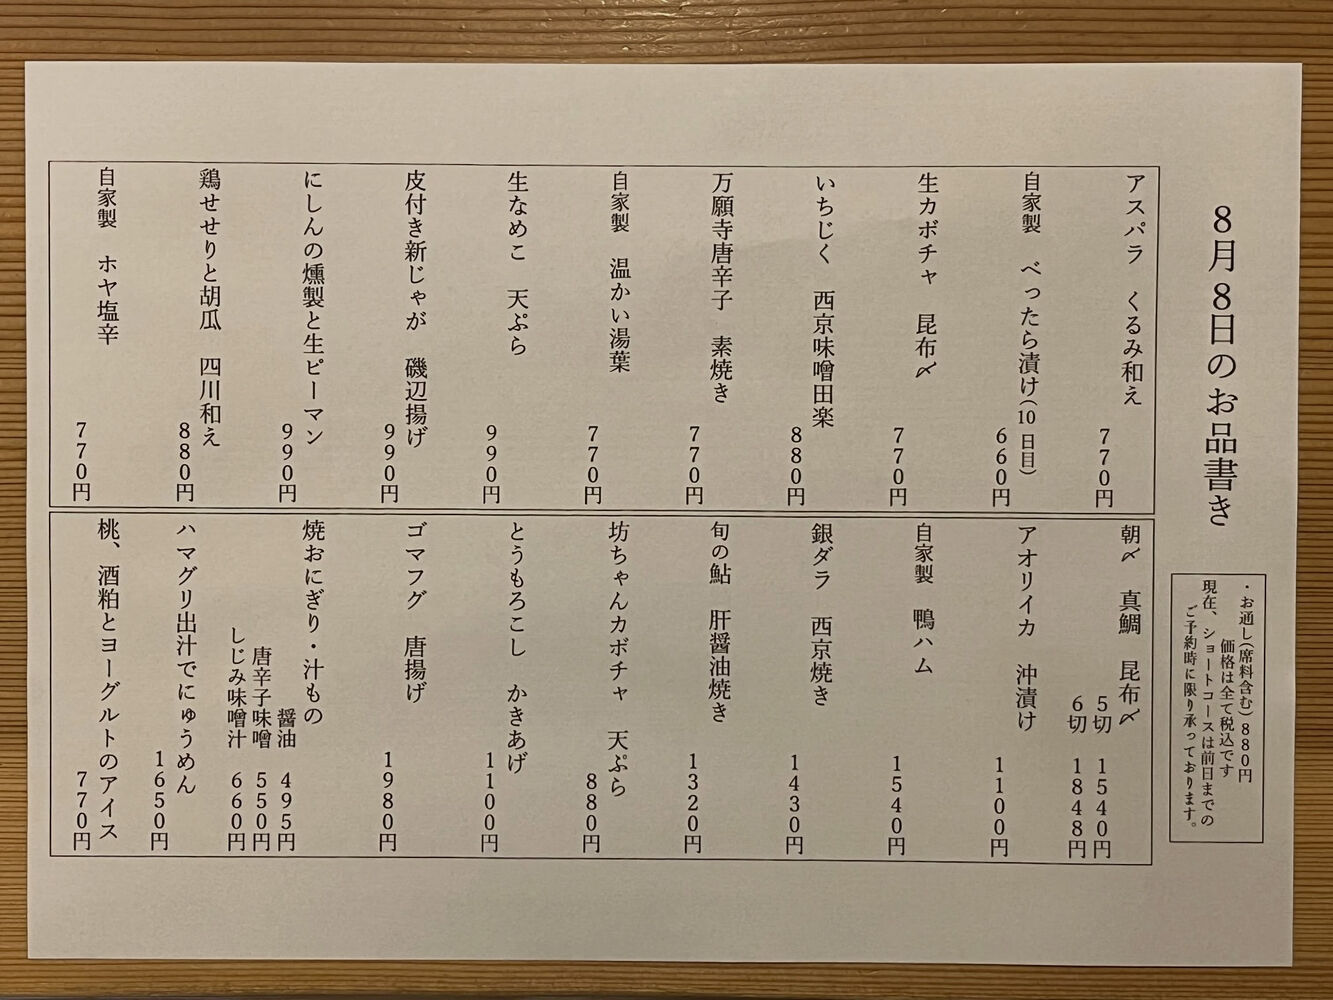 8月8日のお品書き
・お通し(席料含む)880円
価格は全て税込です
現在、ショートコースは前日までの
ご予約時に限り承っております。
アスパラ　くるみ和え
770円
自家製　べったら漬け(10日目)
660円
生カボチャ　昆布〆
770円
いちじく　西京味噌田楽
880円
万願寺唐辛子　素焼き
770円
自家製　温かい湯葉
770円
生なめこ　天ぷら
990円
皮付き新じゃが　磯辺揚げ
990円
にしんの燻製と生ピーマン
990円
鶏せせりと胡瓜　四川和え
880円
自家製　ホヤ塩辛
770円
朝〆　真鯛　昆布〆
5切　1540円
6切　1848円
アオリイカ　沖漬け
1100円
自家製　鴨ハム
1540円
銀ダラ　西京焼き
1430円
旬の鮎　肝醤油焼き
1320円
坊ちゃんカボチャ　天ぷら
880円
とうもろこし　かきあげ
1100円
ゴマフグ　唐揚げ
1980円
焼おにぎり・汁もの
醤油　495円
唐辛子味噌　550円
しじみ味噌汁　660円
ハマグリ出汁でにゅうめん
1650円
桃、酒粕とヨーグルトのアイス
770円